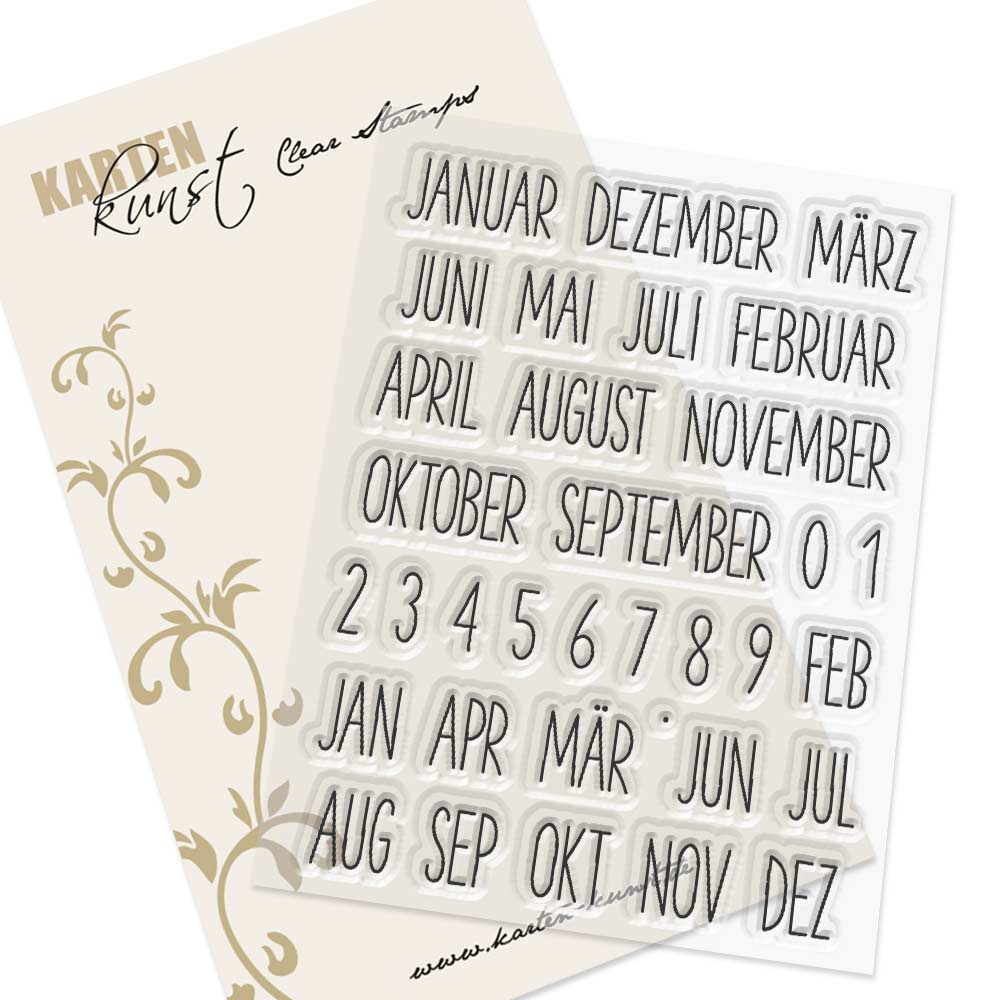 KARTEN
kunst Clear Stamps
JANUAR DEZEMBER MÄRZ
JUNI MAI JULI FEBRUAR
APRIL AUGUST NOVEMBER
OKTOBER SEPTEMBER 0 1
2 3 4 5 6 7 8 9 FEB
JAN APR MÄR . JUN JUL
AUG SEP OKT NOV DEZ